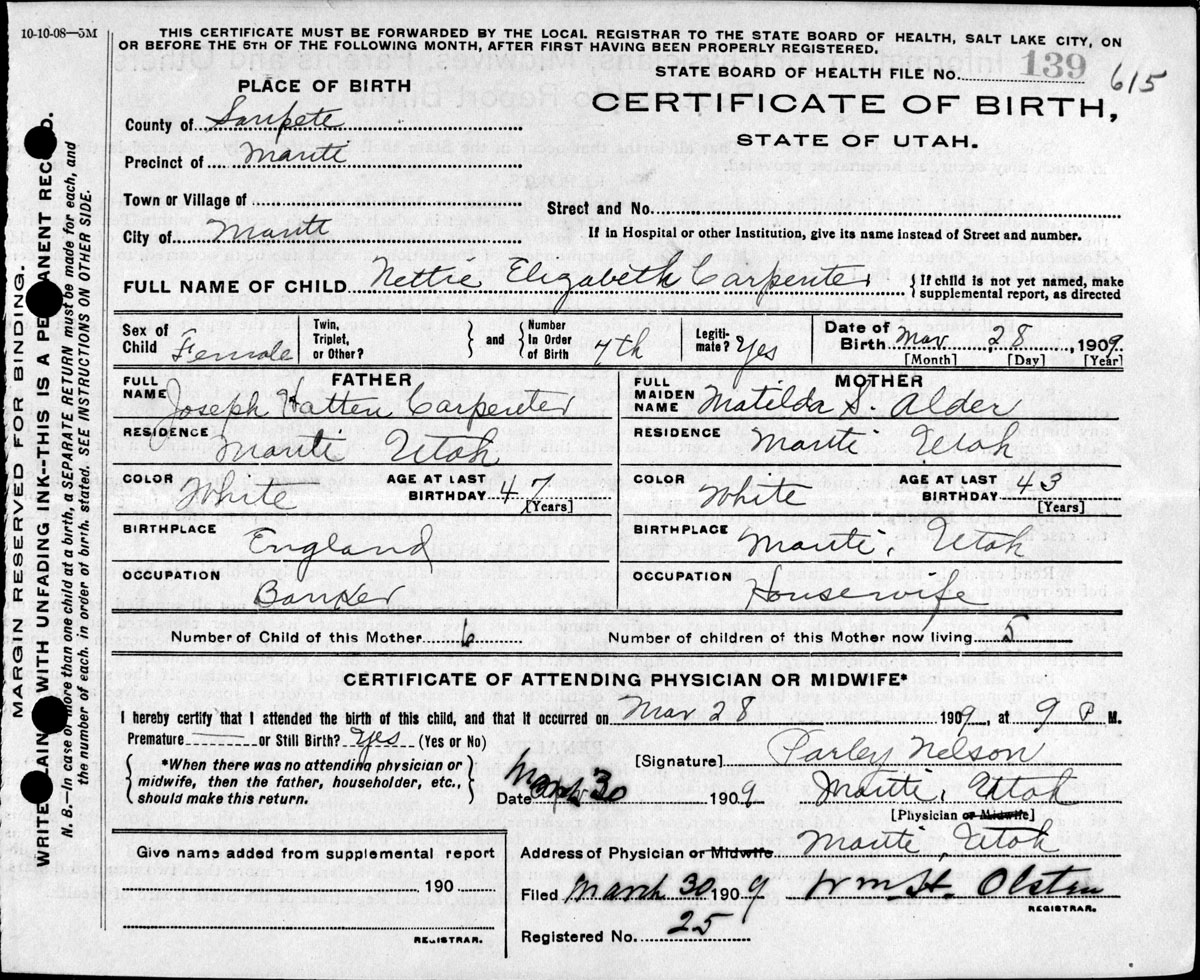 10-10-08—5M
THIS CERTIFICATE MUST BE FORWARDED BY THE LOCAL REGISTRAR TO THE STATE BOARD OF HEALTH, SALT LAKE CITY, ON
OR BEFORE THE 5TH OF THE FOLLOWING MONTH, AFTER FIRST HAVING BEEN PROPERLY REGISTERED.
STATE BOARD OF HEALTH FILE No. 139 615
PLACE OF BIRTH
CERTIFICATE OF BIRTH,
STATE OF UTAH.
County of Sanpete
Precinct of Manti
Town or Village of
Street and No.
City of Manti
If in Hospital or other Institution, give its name instead of Street and number.
FULL NAME OF CHILD Nettie Elizabeth Carpenter { If child is not yet named, make supplemental report, as directed
Sex of Child Female Twin, Triplet, or Other? } and { Number In Order of Birth 7th Legiti- mate? Yes Date of Birth Mar 28, 1909.
[Month] [Day] [Year]
FATHER
FULL NAME Joseph Hatten Carpenter
RESIDENCE Manti Utah
COLOR White AGE AT LAST BIRTHDAY 47 [Years]
BIRTHPLACE England
OCCUPATION Banker
MOTHER
FULL MAIDEN NAME Matilda S. Alder
RESIDENCE Manti Utah
COLOR White AGE AT LAST BIRTHDAY 43 [Years]
BIRTHPLACE Manti, Utah
OCCUPATION Housewife
Number of Child of this Mother 6 Number of children of this Mother now living 5
CERTIFICATE OF ATTENDING PHYSICIAN OR MIDWIFE*
I hereby certify that I attended the birth of this child, and that it occurred on Mar 28 1909, at 9 P M.
Premature or Still Birth? Yes (Yes or No)
{ *When there was no attending physician or midwife, then the father, householder, etc., should make this return. }
[Signature] Parley Nelson
Date 30 1909 Manti, Utah
[Physician or Midwife]
Address of Physician or Midwife Manti, Utah
Filed March 30 1909 Wm H. Olsten
REGISTRAR.
Registered No. 25
Give name added from supplemental report
190
REGISTRAR.
MARGIN RESERVED FOR BINDING.
WRITE PLAINLY WITH UNFADING INK--THIS IS A PERMANENT RECORD.
N. B.—In case of more than one child at a birth, a SEPARATE RETURN must be made for each, and
the number of each. in order of birth. stated. SEE INSTRUCTIONS ON OTHER SIDE.